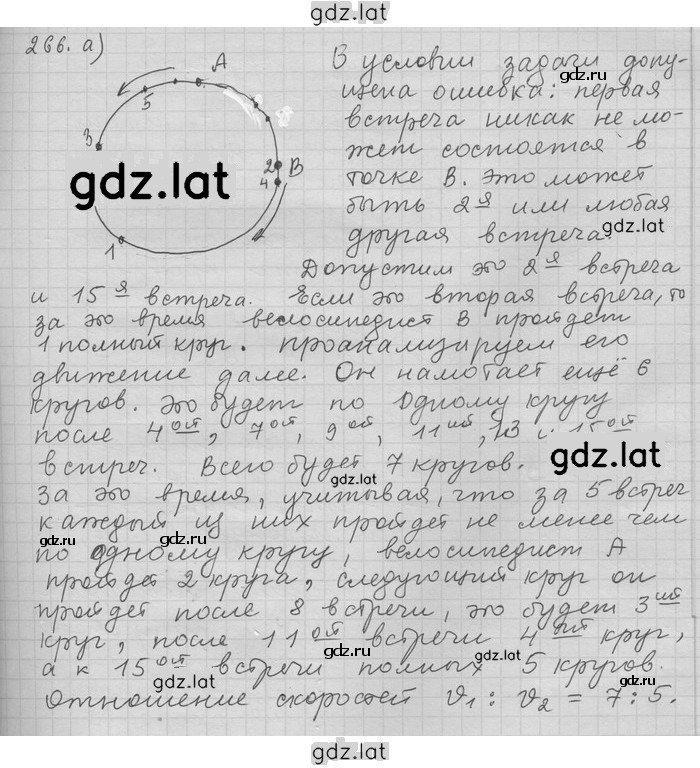 gdz.lat
266. а)
A
5
3
2 B
4
1
В условии задачи допу-
щена ошибка: первая
встреча никак не мо-
жет состоятся в
точке В. Это может
быть 2я или любая
другая встреча.
Допустим это 2я встреча
и 15я встреча. Если это вторая встреча, то
за это время велосипедист В пройдет
1 полный круг. Проанализируем его
движение далее. Он намотает ещё 6
кругов. Это будет по одному кругу
после 4ой, 7ой, 9ой, 11ий, 13 и 15ой
встреч. Всего будет 7 кругов.
За это время, учитывая, что за 5 встреч
каждый из них пройдет не менее чем
по одному кругу, велосипедист А
пройдет 2 круга, следующий круг он
пройдет после 8 встречи, это будет 3ий
круг, после 11ой встречи 4ый круг,
а к 15ой встречи полных 5 кругов.
Отношение скоростей ϑ1 : ϑ2 = 7 : 5.
gdz.lat
gdz.lat
gdz.lat
gdz.lat
gdz.lat
gdz.lat
gdz.lat
gdz.lat
gdz.lat
gdz.lat
gdz.lat
gdz.lat
gdz.lat